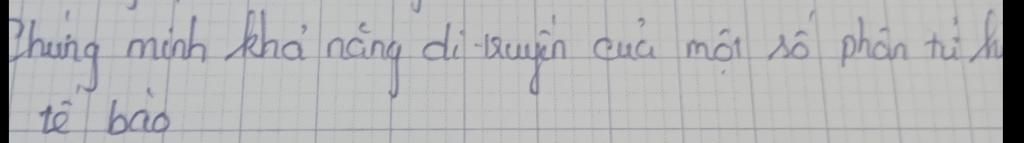 Chứng minh khả năng di chuyển của một số phân tử
tế bào